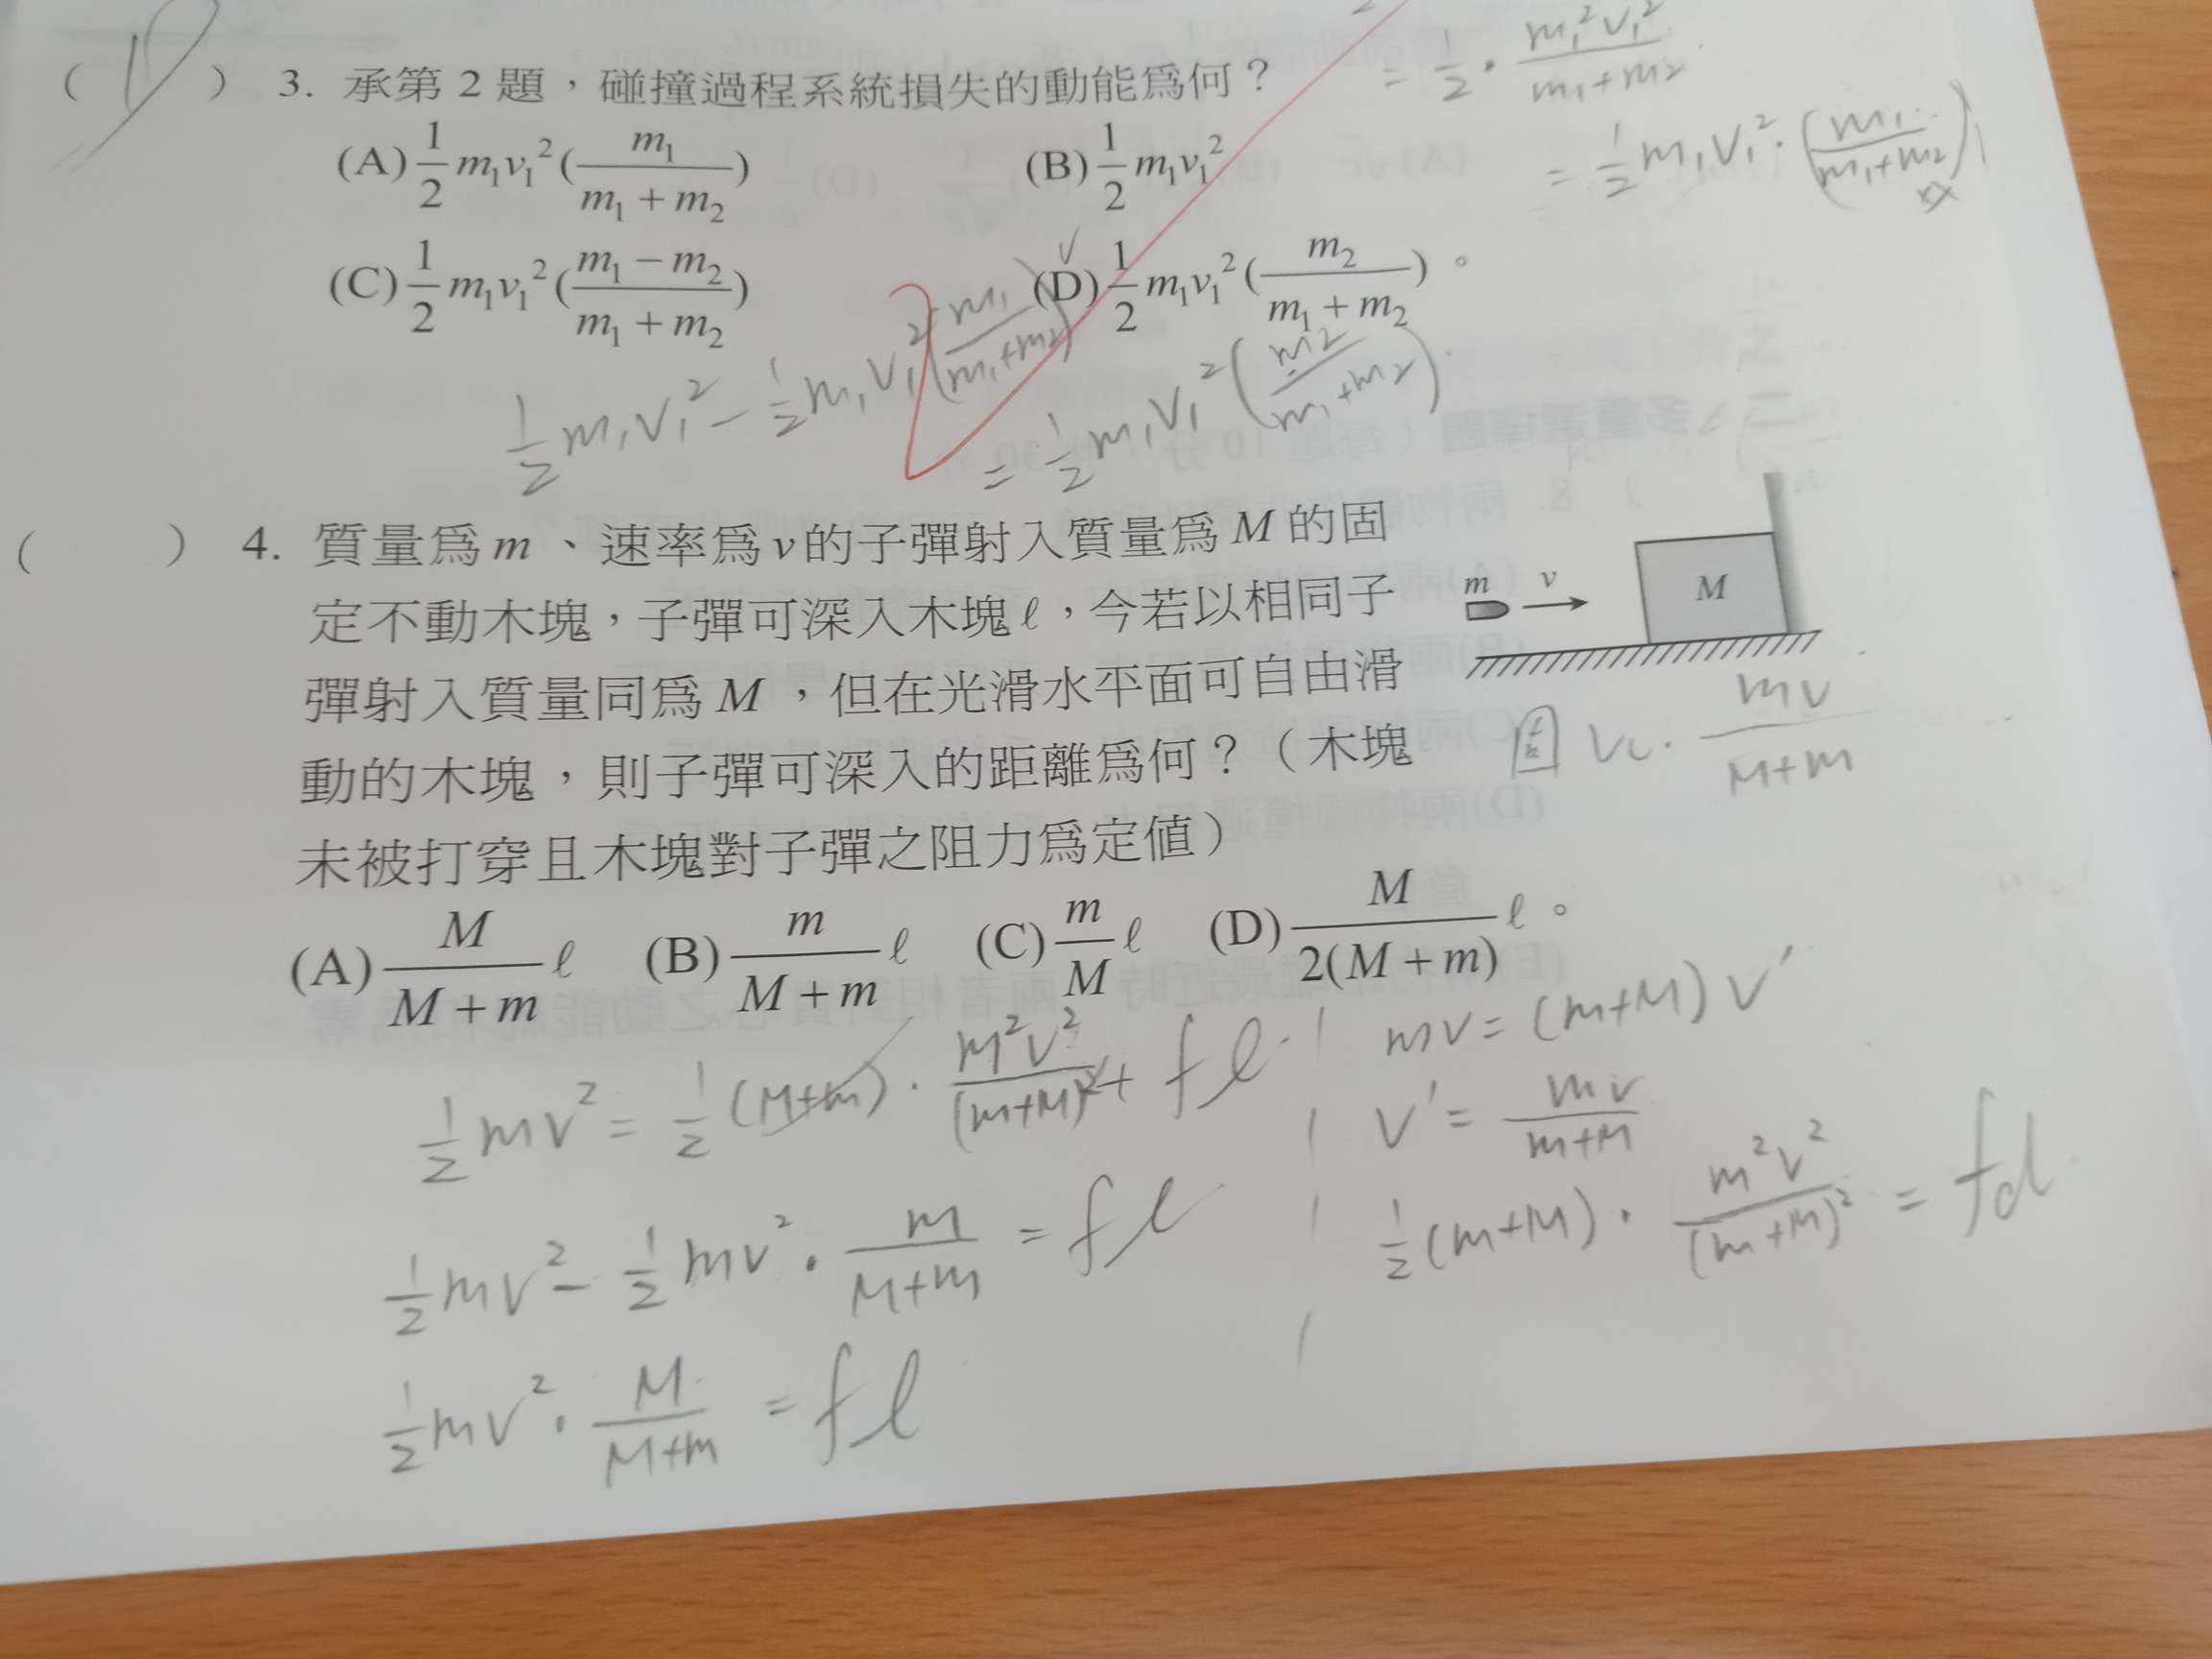 = 1/2 · m₁²v₁²/(m₁+m₂)
= 1/2 m₁v₁² · (m₁/(m₁+m₂))
( D ) 3. 承第 2 題，碰撞過程系統損失的動能為何？
(A) 1/2 m₁v₁² (m₁/(m₁ + m₂)) (B) 1/2 m₁v₁²
(C) 1/2 m₁v₁² ((m₁ − m₂)/(m₁ + m₂)) (D) 1/2 m₁v₁² (m₂/(m₁ + m₂)) 。
1/2 m₁v₁² − 1/2 m₁v₁² (m₁/(m₁+m₂)) = 1/2 m₁v₁² (m₂/(m₁+m₂))
( ) 4. 質量為 m 、速率為 v 的子彈射入質量為 M 的固
定不動木塊，子彈可深入木塊 ℓ，今若以相同子
彈射入質量同為 M ，但在光滑水平面可自由滑
動的木塊，則子彈可深入的距離為何？（木塊
未被打穿且木塊對子彈之阻力為定值）
m v M
Vc · mv/(M+m)
(A) M/(M + m) ℓ (B) m/(M + m) ℓ (C) m/M ℓ (D) M/(2(M + m)) ℓ 。
1/2 mv² = 1/2 (M+m) · m²v²/(m+M)² + fℓ
1/2 mv² − 1/2 mv² · m/(M+m) = fℓ
1/2 mv² · M/(M+m) = fℓ
mv = (m+M) v'
v' = mv/(m+M)
1/2 (m+M) · m²v²/(m+M)² = fd